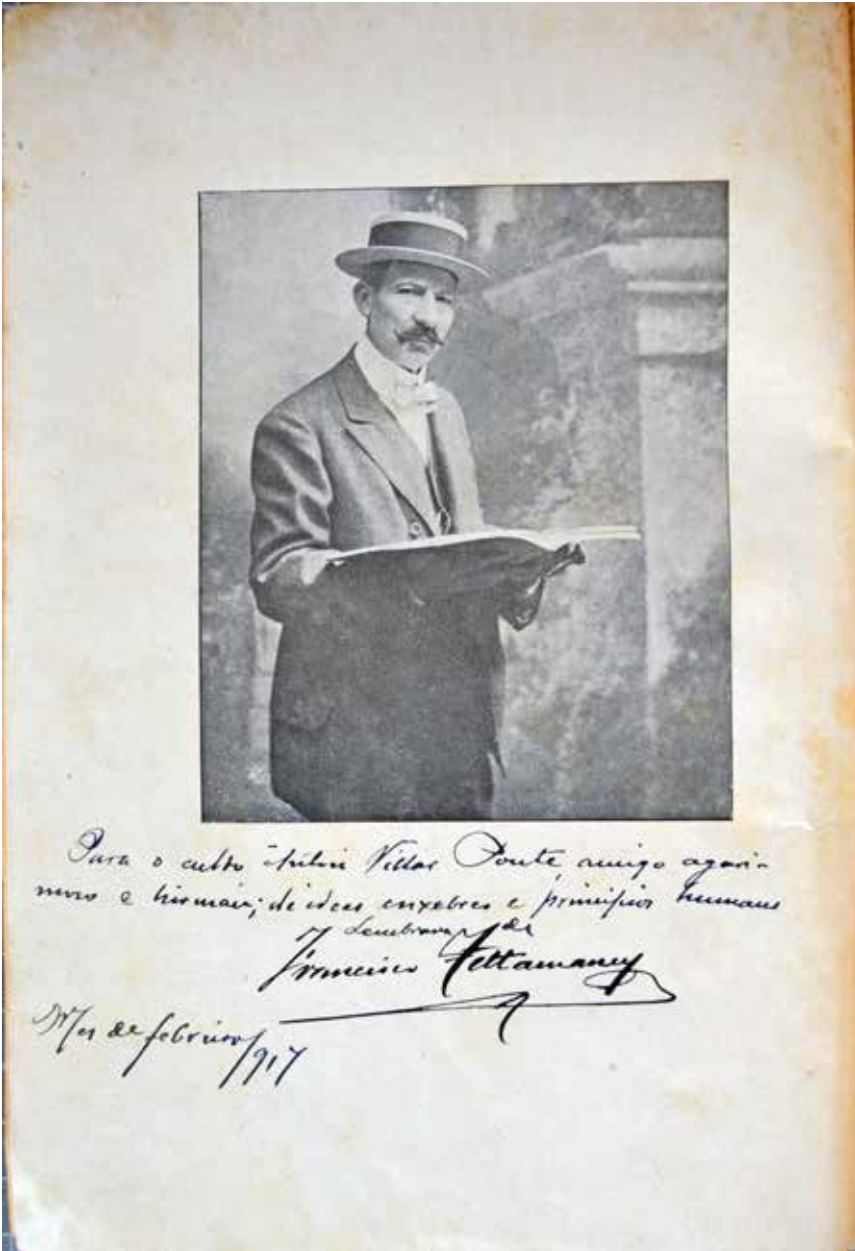 Para o culto Villar Ponte, amigo agari-
moso e hirmán; de ideas enxebres e principios humans
Lembranza de
Francisco Tettamancy
Mes de febreiro/917